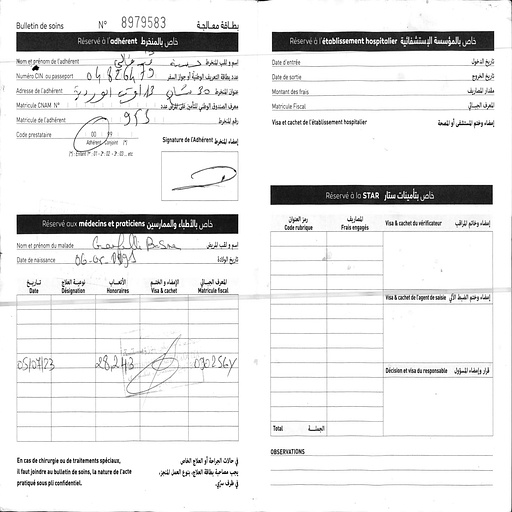 Bulletin de soins N° 8979583 بطاقة معالجة
Réservé à l'adhérent خاص بالمنخرط
Nom et prénom de l'adhérent اسم و لقب المنخرط
Numéro CIN ou passeport 04826479 عدد بطاقة التعريف الوطنية أو جواز السفر
Adresse de l'adhérent عنوان المنخرط
Matricule CNAM N°
Matricule de l'adhérent 953 رقم المنخرط
Code prestataire 00 99
Adhérent Conjoint (*)
(*) : Enfant 1er, 01 - 2 : 02 - 3 : 03 .. etc.
Signature de l'Adhérent إمضاء المنخرط
Réservé aux médecins et praticiens خاص بالأطباء والممارسين
Nom et prénom du malade اسم و لقب المريض
Date de naissance تاريخ الولادة
تاريخ نوعية العلاج الأتعاب الإمضاء و الختم المعرف الجبائي
Date Désignation Honoraires Visa & cachet Matricule fiscal
05/07/23 28,243
En cas de chirurgie ou de traitements spéciaux,
il faut joindre au bulletin de soins, la nature de l'acte
pratiqué sous pli confidentiel.
في حالات الجراحة أو العلاج الخاص
يجب مصاحبة بطاقة العلاج، بنوع العمل المنجز،
في ظرف سري.
Réservé à l'établissement hospitalier خاص بالمؤسسة الإستشفائية
Date d'entrée تاريخ الدخول
Date de sortie تاريخ الخروج
Montant des frais مقدار المصاريف
Matricule Fiscal المعرف الجبائي
Visa et cachet de l'établissement hospitalier إمضاء وختم المستشفى أو المصحة
Réservé à la STAR خاص بتأمينات ستار
رمز العنوان المصاريف
Code rubrique Frais engagés
Visa & cachet du vérificateur إمضاء وخاتم المراقب
Visa & cachet de l'agent de saisie إمضاء وختم الضبط الآلي
Décision et visa du responsable قرار وإمضاء المسؤول
Total الجملة
OBSERVATIONS